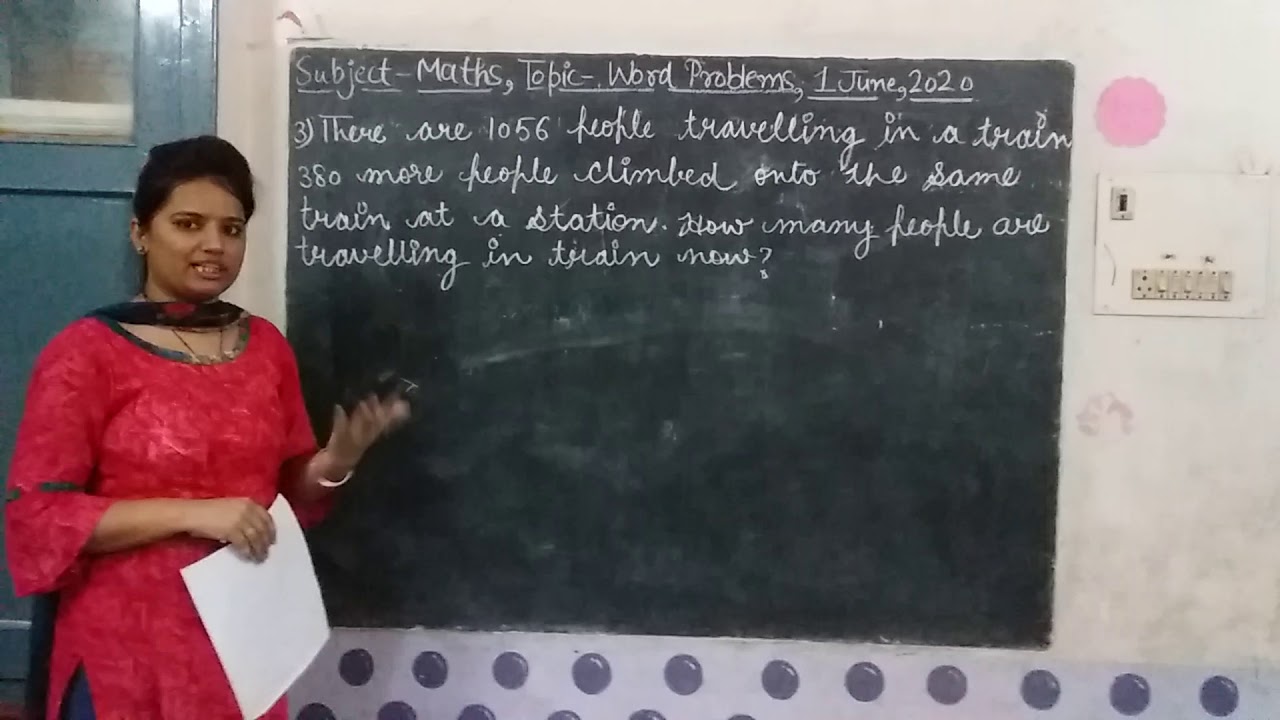 Subject - Maths, Topic - Word Problems, 1 June, 2020
3) There are 1056 people travelling in a train
380 more people climbed onto the same
train at a station. How many people are
travelling in train now?